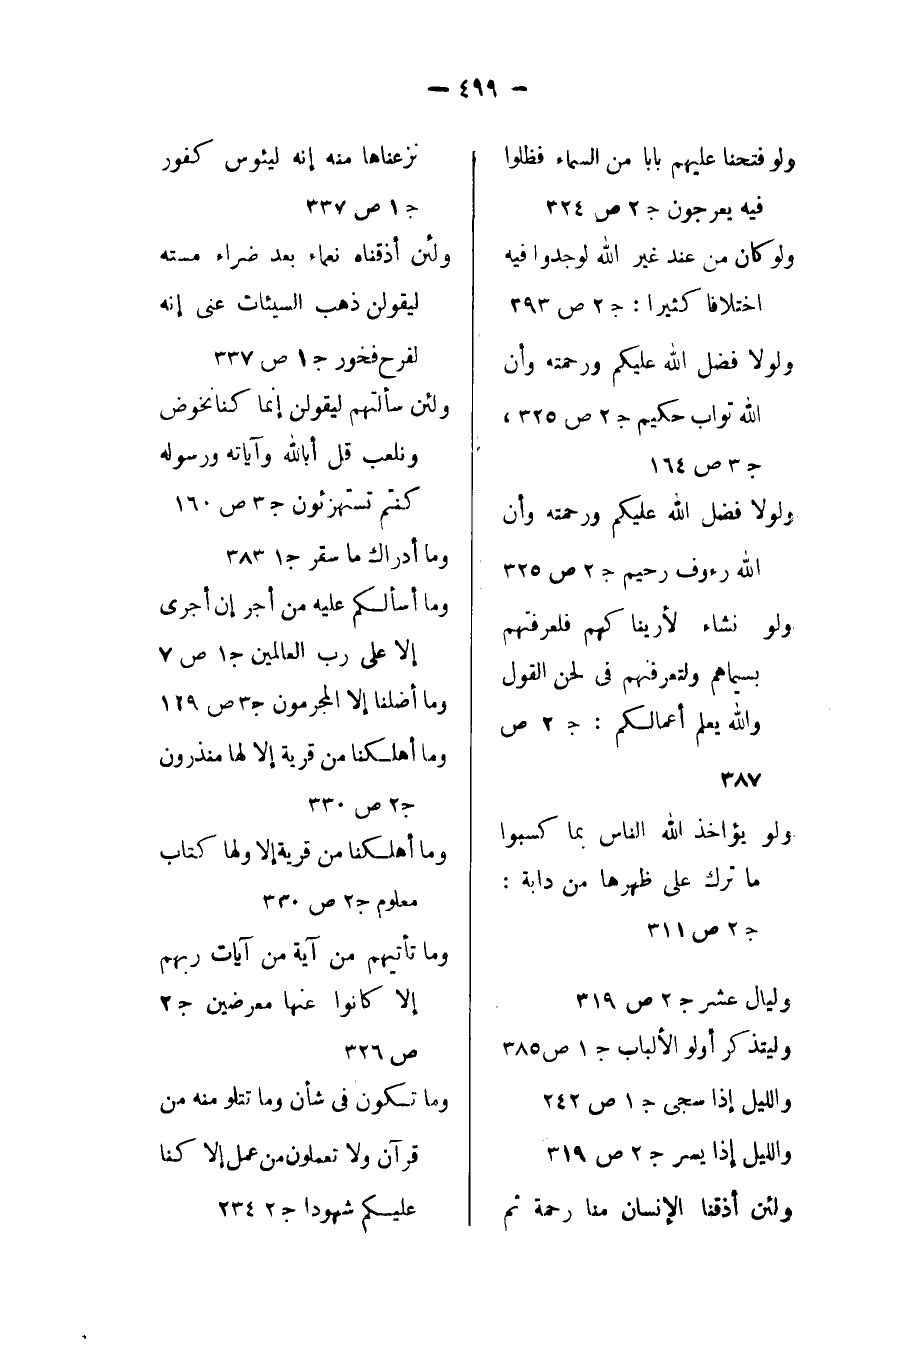 — ٤٩٩ —
ولو فتحنا عليهم بابا من السماء فظلوا
فيه يعرجون ج ٢ ص ٣٢٤
ولو كان من عند غير الله لوجدوا فيه
اختلافا كثيرا : ج ٢ ص ٣٩٣
ولولا فضل الله عليكم ورحمته وأن
الله تواب حكيم ج ٢ ص ٣٢٥ ،
ج ٣ ص ١٦٤
ولولا فضل الله عليكم ورحمته وأن
الله رءوف رحيم ج ٢ ص ٣٢٥
ولو نشاء لأريناكهم فلعرفتهم
بسيماهم ولتعرفنهم فى لحن القول
والله يعلم أعمالكم : ج ٢ ص
٣٨٧
ولو يؤاخذ الله الناس بما كسبوا
ما ترك على ظهرها من دابة :
ج ٢ ص ٣١١
وليال عشر ج ٢ ص ٣١٩
وليتذكر أولو الألباب ج ١ ص ٣٨٥
والليل إذا سجى ج ١ ص ٢٤٢
والليل إذا يسر ج ٢ ص ٣١٩
ولئن أذقنا الإنسان منا رحمة ثم
نزعناها منه إنه ليئوس كفور
ج ١ ص ٣٣٧
ولئن أذقناه نعماء بعد ضراء مسته
ليقولن ذهب السيئات عنى إنه
لفرح فخور ج ١ ص ٣٣٧
ولئن سألتهم ليقولن إنما كنا نخوض
ونلعب قل أبالله وآياته ورسوله
كنتم تستهزئون ج ٣ ص ١٦٠
وما أدراك ما سقر ج ١ ٣٨٣
وما أسألكم عليه من أجر إن أجرى
إلا على رب العالمين ج ١ ص ٧
وما أضلنا إلا المجرمون ج ٣ ص ١٢٩
وما أهلكنا من قرية إلا لها منذرون
ج ٢ ص ٣٣٠
وما أهلكنا من قرية إلا ولها كتاب
معلوم ج ٢ ص ٣٣٠
وما تأتيهم من آية من آيات ربهم
إلا كانوا عنها معرضين ج ٢
ص ٣٢٦
وما تكون فى شأن وما تتلو منه من
قرآن ولا تعملون من عمل إلا كنا
عليكم شهودا ج ٢ ٢٣٤